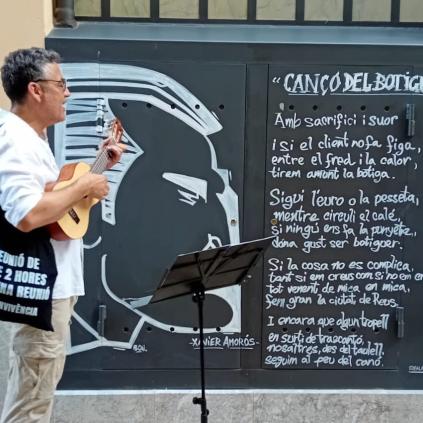 "CANÇÓ DEL BOTIGU
Amb sacrifici i suor
i si el client no fa figa,
entre el fred i la calor,
tirem amunt la botiga.
Sigui l'euro o la pesseta,
mentre circuli el calé,
si ningú ens fa la punyeta,
dóna gust ser botiguer.
Si la cosa no es complica,
tant si em creus con si no en
tot venent de mica en mica,
fem gran la ciutat de Reus.
I encara que algun tropell
en surti de trascantó,
nosaltres, des del taulell,
seguim al peu del canó.
-XAVIER AMORÓS-
EUNIÓ DE
E 2 HORES
NA REUNIÓ
NVIVÈNCIA